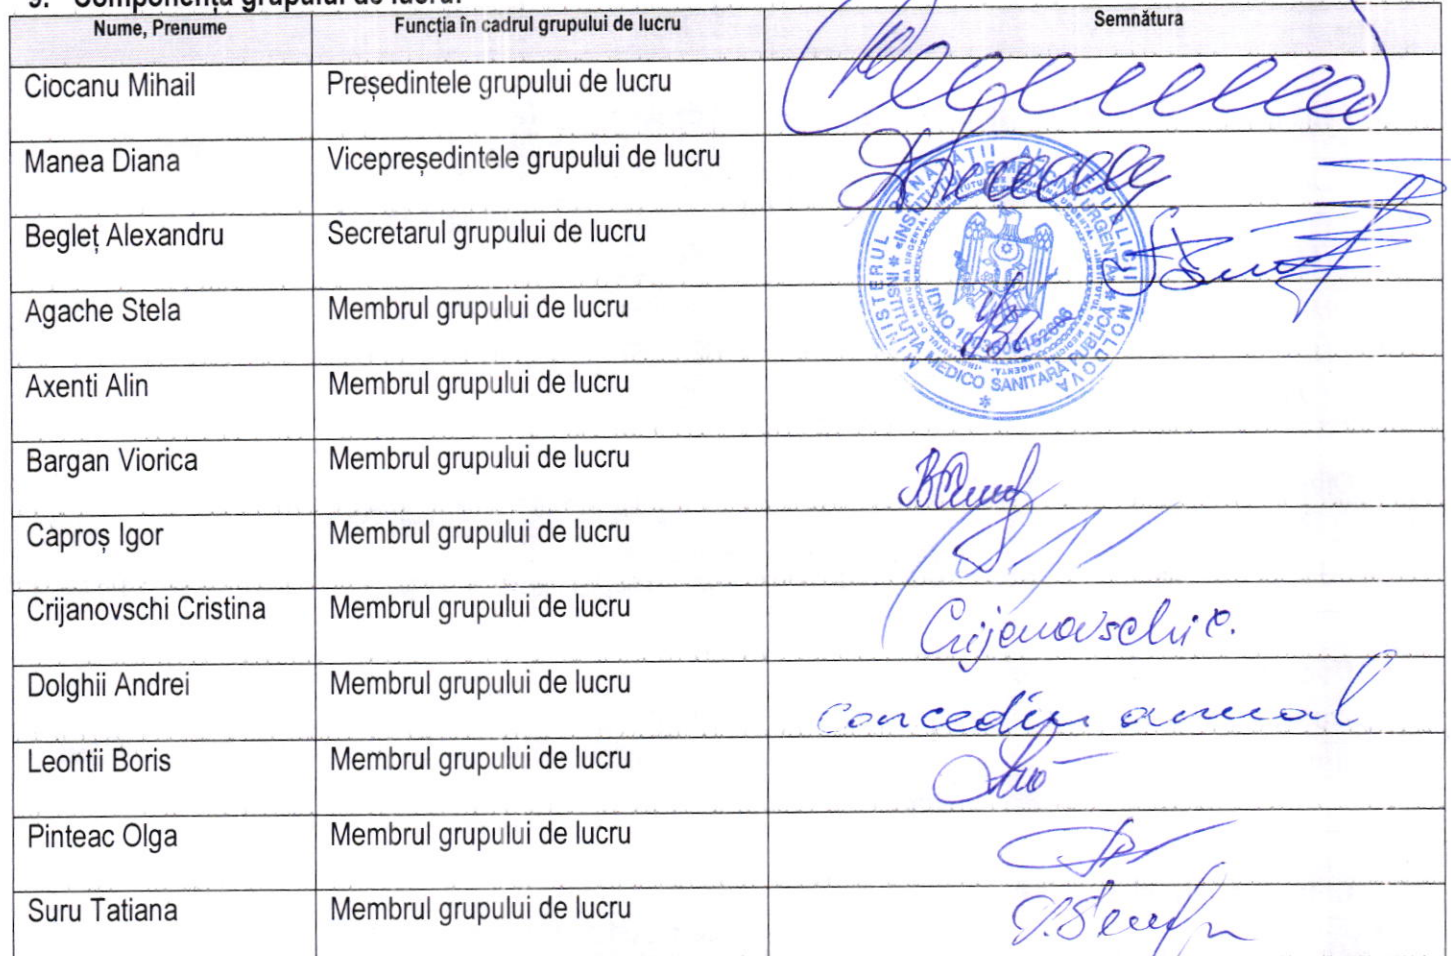 9. Componența grupului de lucru:
Nume, Prenume Funcția în cadrul grupului de lucru Semnătura
Ciocanu Mihail Președintele grupului de lucru
Manea Diana Vicepreședintele grupului de lucru
Begleț Alexandru Secretarul grupului de lucru
Agache Stela Membrul grupului de lucru
Axenti Alin Membrul grupului de lucru
Bargan Viorica Membrul grupului de lucru
Caproș Igor Membrul grupului de lucru
Crijanovschi Cristina Membrul grupului de lucru Crijanovschi C.
Dolghii Andrei Membrul grupului de lucru concediu anual
Leontii Boris Membrul grupului de lucru
Pinteac Olga Membrul grupului de lucru
Suru Tatiana Membrul grupului de lucru
MINISTERUL SĂNĂTĂȚII AL REPUBLICII MOLDOVA
INSTITUȚIA MEDICO SANITARĂ PUBLICĂ «INSTITUTUL DE MEDICINĂ URGENTĂ»
IDNO